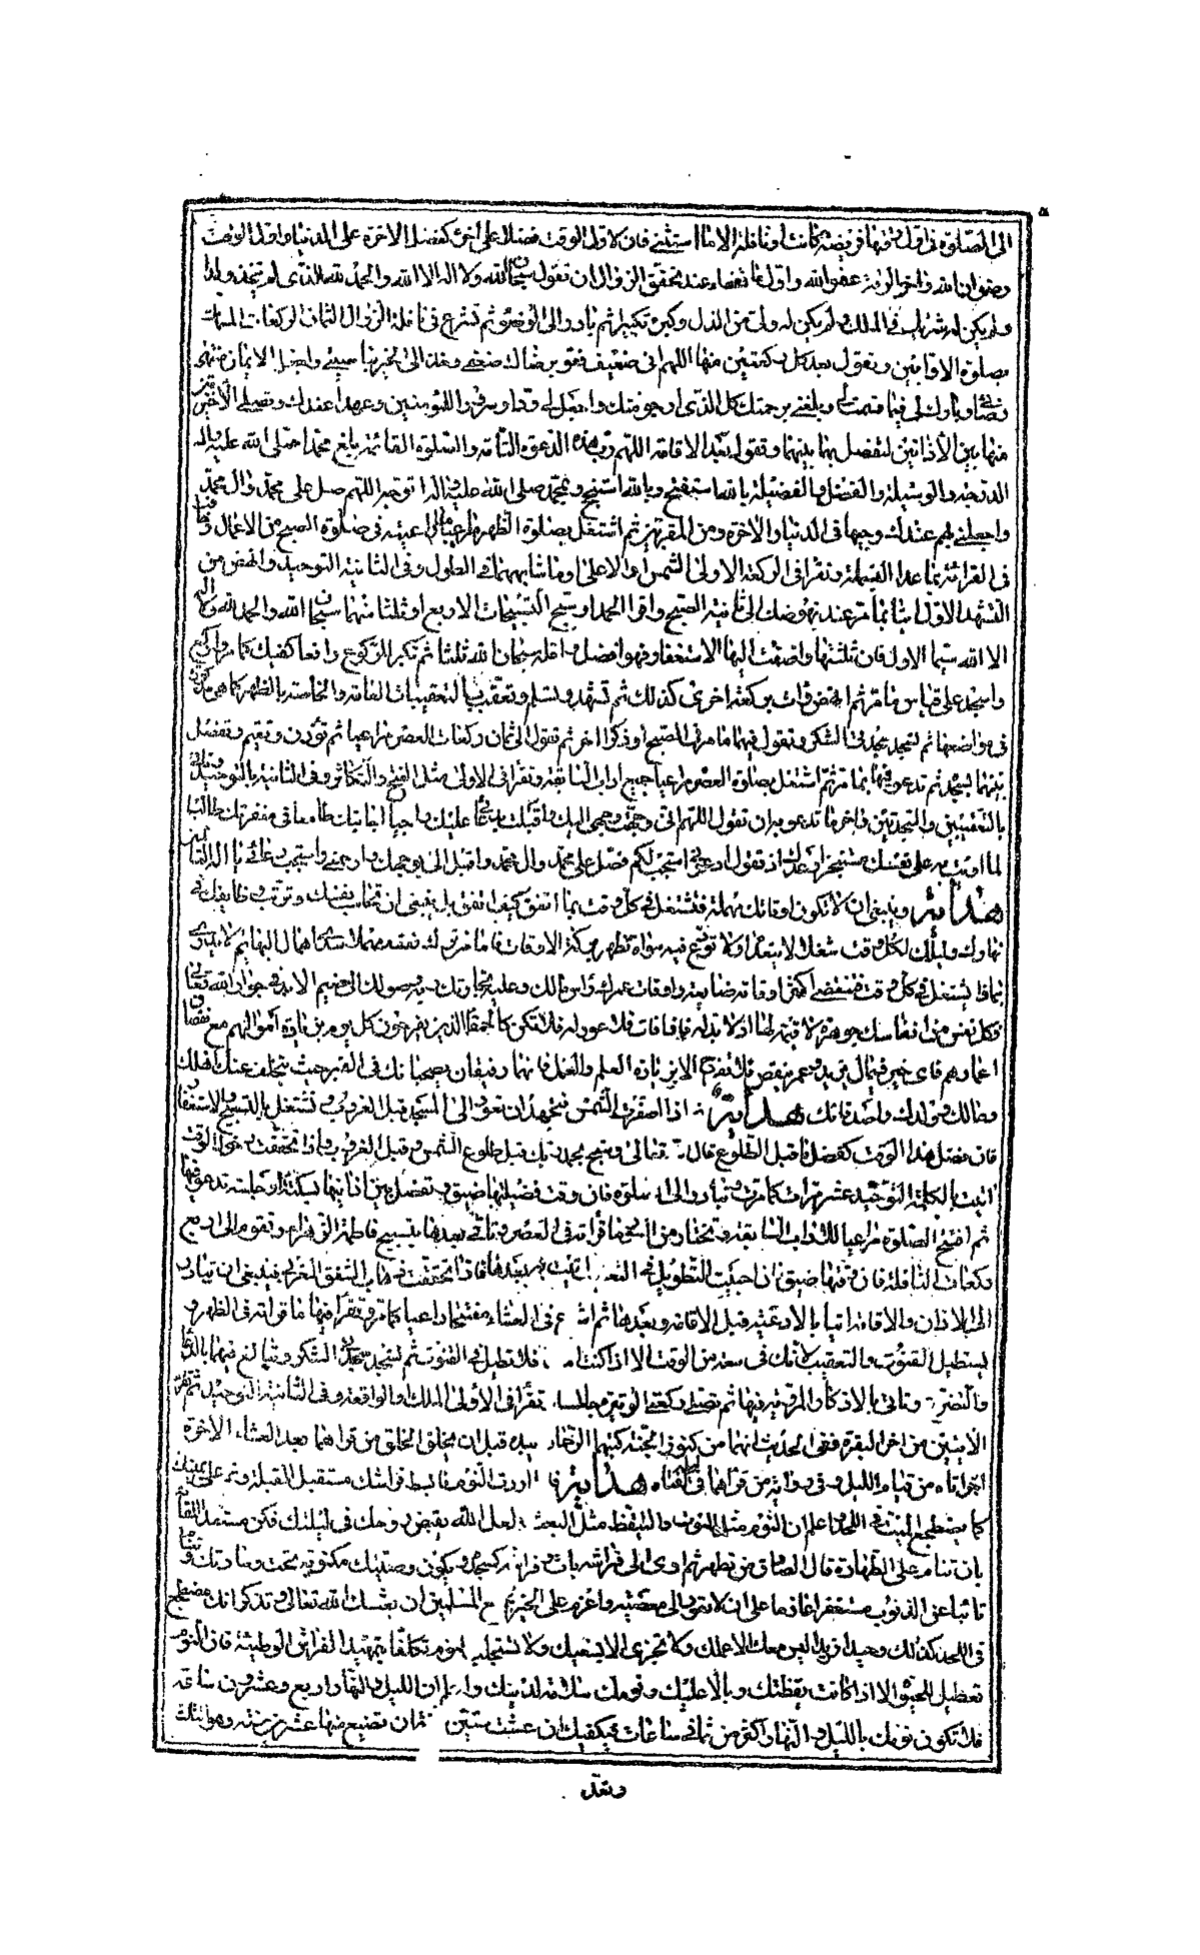 الى الصلوة فى اول وقتها فريضة كانت او نافلة الا ما استثنى فان لاول الوقت فضلا على اخره كفضل الاخرة على الدنيا واول الوقت
رضوان الله واخر الوقت عفو الله واول ما تفعله عند تحقق الزوال ان تقول سبحان الله ولا اله الا الله والحمد لله الذى لم يتخذ ولدا
ولم يكن له شريك فى الملك ولم يكن له ولى من الذل وكبره تكبيرا ثم بادر الى الوضوء ثم تشرع فى نافلة الزوال الثمان الركعات المسماة
بصلوة الاوابين وتقول بعد كل ركعتين منها اللهم انى ضعيف فقو برضاك ضعفى وخذ الى الخير بناصيتى واجعل الايمان منتهى
رضائى وبارك لى فيما قسمت لى وبلغنى برحمتك كل الذى ارجو منك واجعل لى ودا وسرورا للمؤمنين وعهدا عندك وتصلى الاخيرتين
منها بين الاذانين لتفصل بهما بينهما وتقول بعد الاقامة اللهم رب هذه الدعوة التامة والصلوة القائمة بلغ محمدا صلى الله عليه واله
الدرجة والوسيلة والفضل والفضيلة بالله استفتح وبالله استنجح وبمحمد صلى الله عليه واله اتوجه اللهم صل على محمد وال محمد
واجعلنى بهم عندك وجيها فى الدنيا والاخرة ومن المقربين ثم اشتغل بصلوة الظهر مراعيا ما راعيته فى صلوة الصبح من الاعمال
فى القرائة بما عدا البسملة وتقرا فى الركعة الاولى الشمس او الاعلى وما شابههما فى الطول وفى الثانية التوحيد وانهض من
التشهد الاول اتيا بما مر عند نهوضك الى ثانية الصبح واقرا الحمد او سبح التسبيحات الاربع او ثلثا منها سبحان الله والحمد لله ولا اله
الا الله سيما الاول فان ثلثتها واضفت اليها الاستغفار فهو افضل ثم تكبر للركوع رافعا كفيك كما مر واركع
واسجد على قياس ما مر ثم انهض وات بركعة اخرى كذلك ثم تشهد وتسلم وتعقب بالتعقيبات العامة والخاصة بالظهر كما هى مذكورة
فى مواضعها ثم تسجد سجدتى الشكر وتقول فيهما ما مر فى الصبح او ذكرا اخر ثم تقوم الى ثمان ركعات العصر مراعيا ثم تؤذن وتقيم وتفصل
بينهما بسجدة ثم تدعو فيها بما مر ثم اشتغل بصلوة العصر مراعيا جميع اداب السابقة وتقرا فى الاولى مثل الفتح والتكاثر وفى الثانية بالتوحيد
بالتعقيبين والسجدتين واخر ما تدعو به ان تقول اللهم انى وجهت وجهى اليك واقبلت بدعائى عليك راجيا اجابتك طامعا فى مغفرتك طالبا
لما اوئت به على نفسك مستنجزا وعدك اذ تقول ادعونى استجب لكم فصل على محمد وال محمد واقبل الى بوجهك وارحمنى واستجب دعائى يا اله العالمين
هداية وينبغى ان لا تكون اوقاتك مهملة فتشتغل فى كل وقت بما اتفق كيف اتفق بل ينبغى ان تحاسب نفسك وترتب وظائفك فى
نهارك وليلك لكل وقت شغلا لا يتعداه ولا توقع فيه سواه تظهر بركة الاوقات فاما من ترك نفسه مهملا سدى اهمال البهائم لا يدرى
بماذا يشتغل فى كل وقت فينقضى اكثر اوقاته ضايعة واوقات عمرك راس مالك وعليه تجارتك وبه وصولك الى نعيم الابد فى جوار الله تعالى
فكل نفس من انفاسك جوهرة لا قيمة لها اذ لا بدل له فاذا فات فلا عود له فلا تكن كالحمقا الذين يفرحون كل يوم بزيادة اموالهم مع نقصان
اعمارهم فاى خير فى مال يزيد وعمر ينقص فلا تفرح الا بزيادة العلم والعمل فانهما رفيقان يصحبانك فى القبر حيث يتخلف عنك اهلك
ومالك وولدك واصدقائك هداية اذا اصفرت الشمس فتجهد ان تعود الى المسجد قبل الغروب وتشتغل بالتسبيح والاستغفار
فان فضل هذا الوقت كفضل ما قبل الطلوع قال الله تعالى وسبح بحمد ربك قبل طلوع الشمس وقبل الغروب واذا تحققت دخول الوقت
اتيت بالكلمة التوحيد عشر مرات كما مرت وتبادر الى الصلوة فان وقت فضيلتها ضيق وتفصل بين اذانيها بسكتة او جلسة تدعو فيها
ثم افتتح الصلوة مراعيا للاداب السابقة وتختار من السور ما قرأته فى العصر وتاتى بعدها بتسبيح فاطمة الزهراء وتقوم الى اربع
ركعات النافلة فان وقتها ضيق ان احببت التطويل فى التعقيب اتيت به بعدها فاذا تحققت ذهاب الشفق المغربى فينبغى ان تبادر
الى الاذان والاقامة اتيا بالادعية قبل الاقامة وبعدها ثم اشرع فى العشاء مفتتحا داعيا كما مر وتقرأ فيها ما قرأته فى الظهر و
يستطيل القنوت والتعقيب لانك فى سعة من الوقت الا اذا كنت فلا تطيل فى القنوت ثم تسجد سجدتى الشكر وتبالغ فيهما بالدعاء
والتضرع وتاتى بالاذكار المروية فيها ثم تصلى ركعتى الوتيرة جالسا تقرأ فى الاولى الملك او الواقعة وفى الثانية التوحيد ثم تقرأ
الايتين من اخر البقرة ففى الحديث انهما من كنوز الجنة كتبهما الرحمن بيده قبل ان يخلق الخلق من قراهما بعد العشاء الاخرة
اجزأتاه من قيام الليل وفى رواية من قراهما فى ليلة كفتاه هداية فاذا اردت النوم فابسط فراشك مستقبل القبلة ونم على يمينك
كما يضطجع الميت فى اللحد واعلم ان النوم مثل الموت والتيقظ مثل البعث ولعل الله يقبض روحك فى ليلتك فكن مستعدا للقائه
بان تنام على الطهارة قال الصادق من تطهر ثم اوى الى فراشه بات وفراشه كمسجده ويكون وصيتك مكتوبة تحت وسادتك وتنام
تائبا عن الذنوب مستغفرا عازما على ان لا تعود الى معصية واعزم على الخير لجميع المسلمين ان بعثك الله تعالى وتذكر انك مضطجع
فى اللحد كذلك وحيدا فريدا ليس معك الا عملك ولا تجزى الا بسعيك ولا تستجلب النوم تكلفا بتمهيد الفراش الوطيئة فان النوم
تعطيل للحيوة الا اذا كانت يقظتك وبالا عليك ونومك سلامة لدينك واعلم ان الليل والنهار اربع وعشرون ساعة
فلا تكون نومك بالليل والنهار اكثر من ثمانى ساعات فيكفيك ان عشت ستين ثمان تضيع منها عشرين سنة وهو الثلث
وتعد